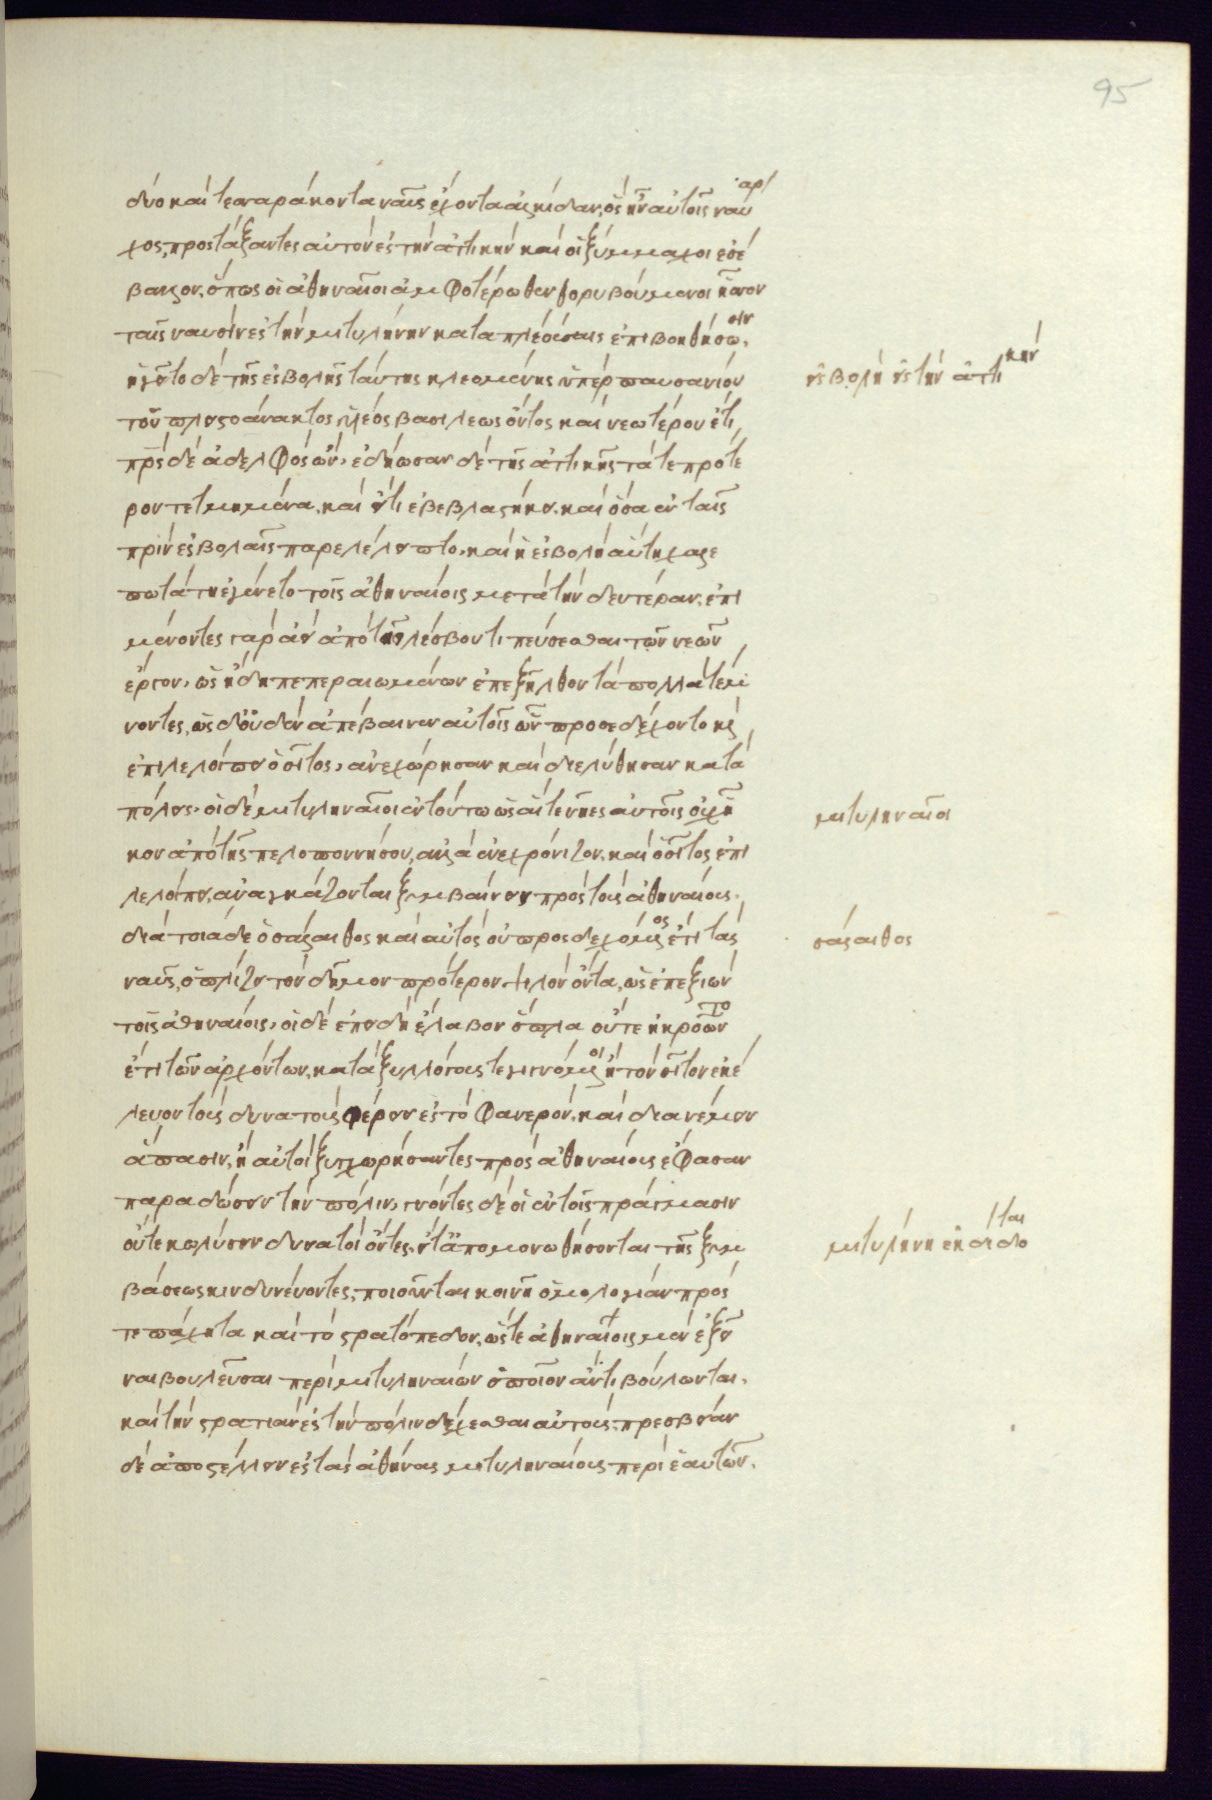 95
δύο καὶ τεσσαράκοντα ναῦς ἔχοντα ἀλκίδαν, ὃς ἦν αὐτοῖς ναύαρ
χος, προστάξαντες αὐτὸν ἐς τὴν ἀττικὴν καὶ οἱ ξύμμαχοι ἐσέ
βαλλον, ὅπως οἱ ἀθηναῖοι ἀμφοτέρωθεν θορυβούμενοι ἧσσον
ταῖς ναυσὶν ἐς τὴν μιτυλήνην καταπλεούσαις ἐπιβοηθήσωσιν.
ἡγεῖτο δὲ τῆς ἐσβολῆς ταύτης κλεομένης ὑπὲρ παυσανίου
ἐσβολὴ εἰς τὴν ἀττικήν
τοῦ πλειστοάνακτος υἱέος βασιλέως ὄντος καὶ νεωτέρου ἔτι,
πρς δὲ ἀδελφὸς ὤν. ἐδήωσαν δὲ τῆς ἀττικῆς τά τε πρότε
ρον τετμημένα, καὶ εἴ τι ἐβεβλαστήκει. καὶ ὅσα ἐν ταῖς
πρὶν ἐσβολαῖς παρελέλειπτο. καὶ ἡ ἐσβολὴ αὕτη χαλε
πωτάτη ἐγένετο τοῖς ἀθηναίοις μετὰ τὴν δευτέραν. ἐπι
μένοντες γὰρ ἀεὶ ἀπὸ τῆς λέσβου τι πεύσεσθαι τῶν νεῶν
ἔργον, ὡς ἤδη πεπεραιωμένων ἐπεξῆλθον τὰ πολλὰ τέμ
νοντες, ὡς δ' οὐδὲν ἀπέβαινεν αὐτοῖς ὧν προσεδέχοντο κς
ἐπιλελοίπει ὁ σῖτος, ἀνεχώρησαν καὶ διελύθησαν κατὰ
πόλεις. οἱ δὲ μιτυληναῖοι ἐν τούτω ὡς αἵ τε νῆες αὐτοῖς οὐχ ἧ
μιτυληναῖοι
κον ἀπὸ τῆς πελοποννήσου, ἀλλὰ ἐνεχρόνιζον. καὶ ὁ σῖτος ἐπι
λελοίπει, ἀναγκάζονται ξυμβαίνειν πρὸς τοὺς ἀθηναίους.
διὰ τοιάδε ὁ σάλαιθος καὶ αὐτὸς οὐ προσδεχόμενος ἔτι τὰς
σάλαιθος
ναῦς, ὁπλίζει τὸν δῆμον πρότερον ψιλὸν ὄντα, ὡς ἐπεξιὼν
τοῖς ἀθηναίοις. οἱ δὲ ἐπειδὴ ἔλαβον ὅπλα οὔτε ἠκροῶντο
ἔτι τῶν ἀρχόντων, κατὰ ξυλλόγους τε γιγνόμενοι ἢ τὸν σῖτον ἐκέ
λευον τοὺς δυνατοὺς φέρειν ἐς τὸ φανερὸν, καὶ διανέμειν
ἅπασιν, ἢ αὐτοὶ ξυγχωρήσαντες πρὸς ἀθηναίους ἔφασαν
παραδώσειν τὴν πόλιν. γνόντες δὲ οἱ ἐν τοῖς πράγμασιν
οὔτε κωλύσειν δυνατοὶ ὄντες, εἴ τ' ἀπομονωθήσονται τῆς ξυμ
μιτυλήνη ἐκδίδοται
βάσεως κινδυνεύοντες, ποιοῦνται κοινῆ ὁμολογίαν πρός
τε πάχητα καὶ τὸ στρατόπεδον, ὥστε ἀθηναίοις μὲν ἐξεῖ
ναι βουλεῦσαι περὶ μιτυληναίων ὁποῖον ἄν τι βούλωνται.
καὶ τὴν στρατιὰν ἐς τὴν πόλιν δέχεσθαι αὐτούς, πρεσβείαν
δὲ ἀποστέλλειν ἐς τὰς ἀθήνας μιτυληναίους περὶ ἑαυτῶν.